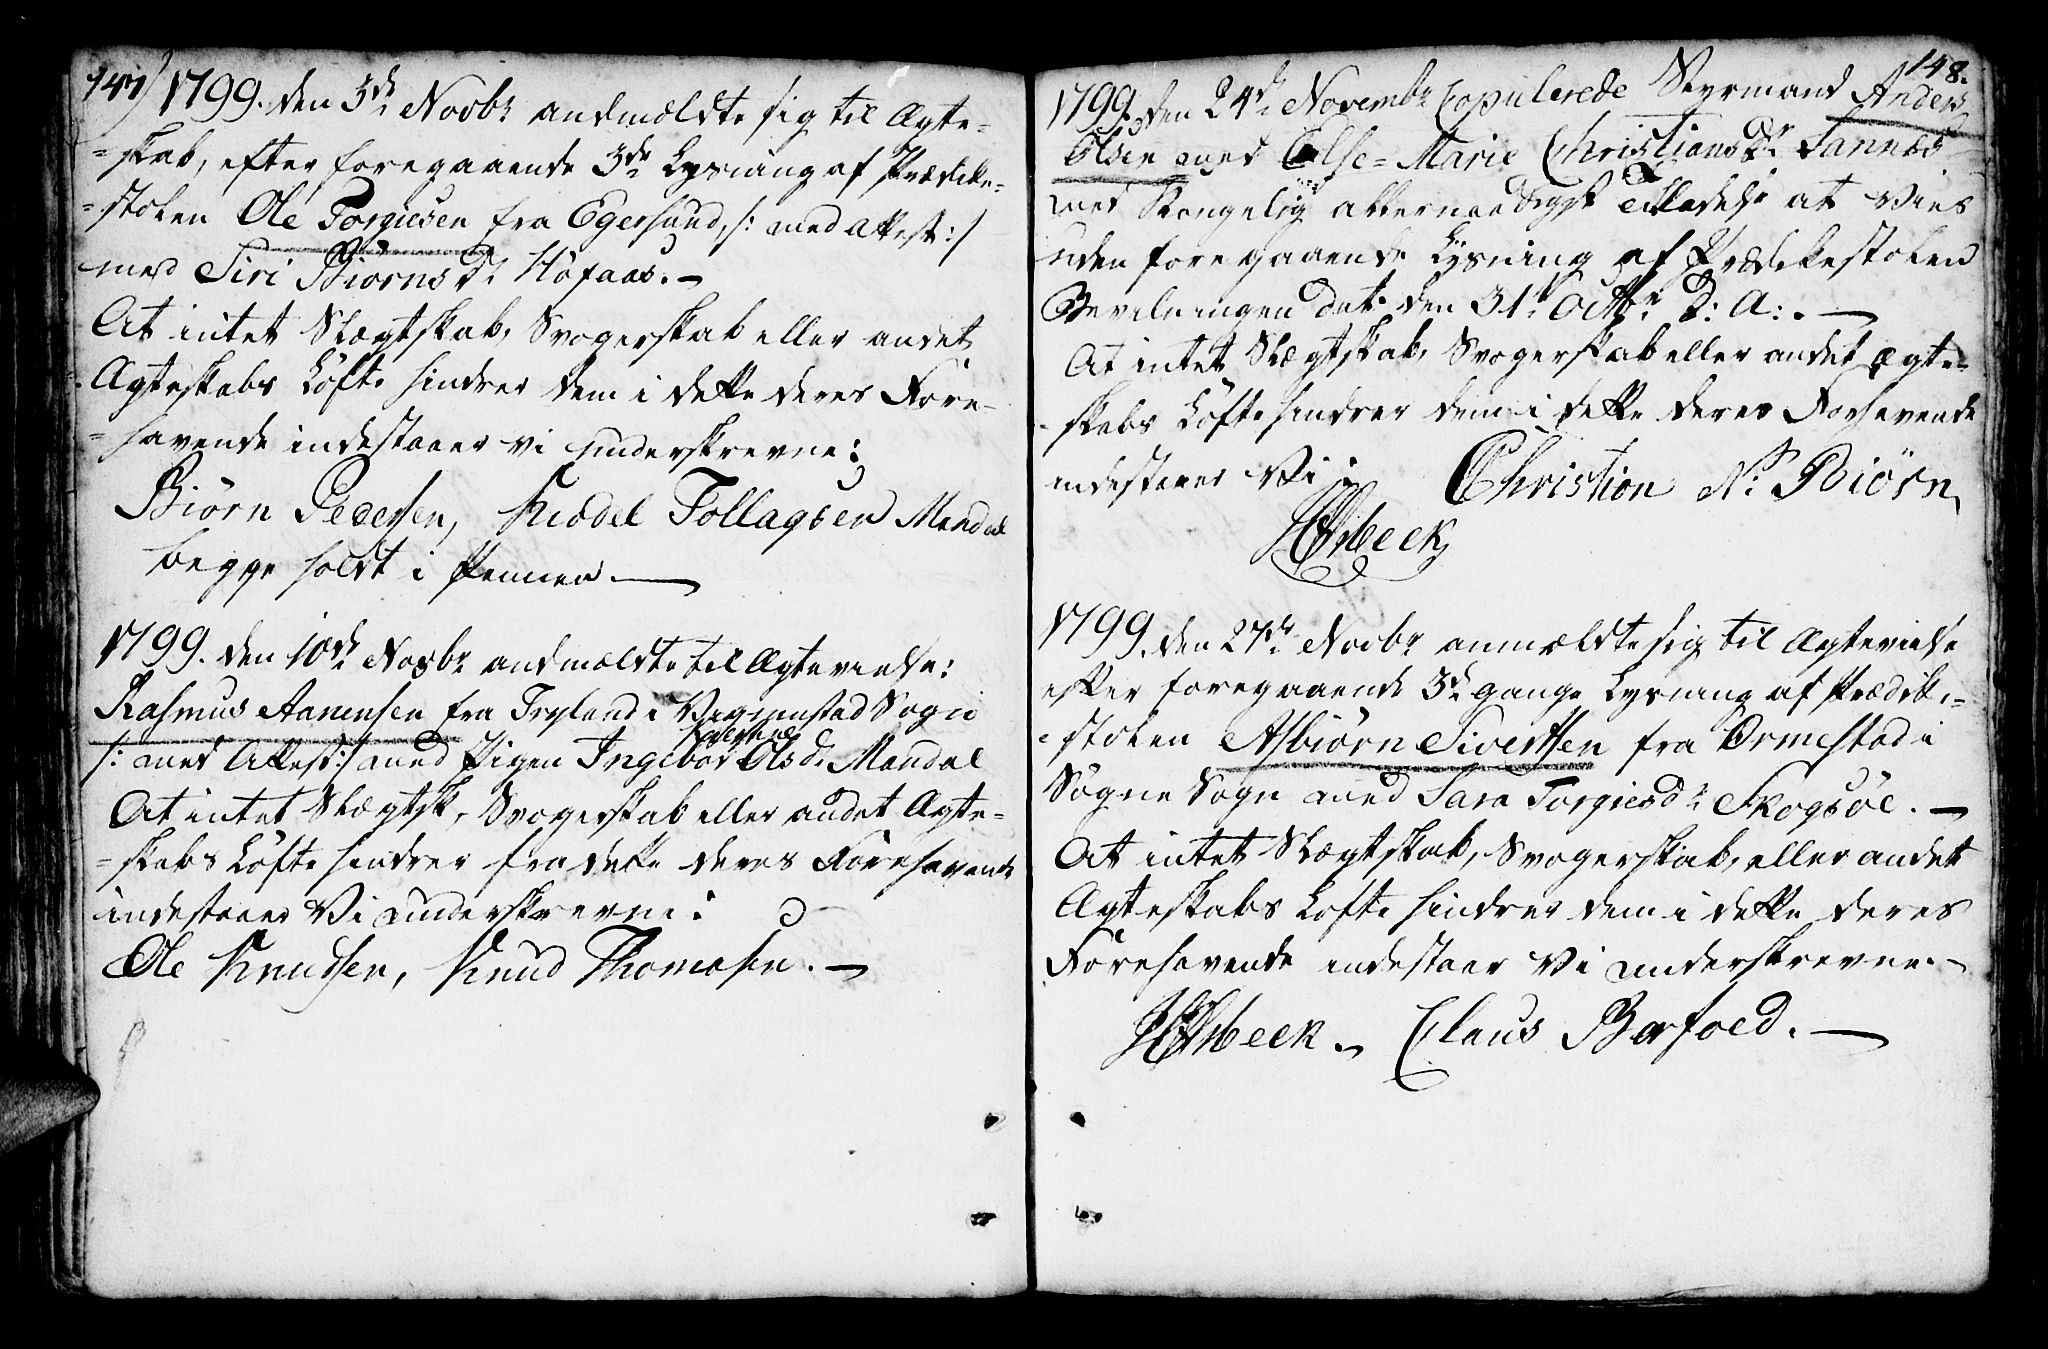 147) 1799. den 3de Novbr andmældte sig til Ægte-
-skab, efter foregaaende 3de Lysning af Prædike-
-stolen Ole Torgiesen fra Egersund, /: med Attest :/
med Siri Biørnsdr Høfaas. -
At intet Slægtskab, Svogerskab eller andet
Ægteskabs Løfte hindrer dem i dette deres Fore-
-havende indestaaer vi underskrevne:
Biørn Pedersen, Kiødel Tollagsen Mandal
begge holdt i Pennen. —
1799. den 10de Novbr andmældte til Ægtevielse:
Rasmus Aanensen fra Tryland i Vigmostad Sogn
/: med Attest :/ med Pigen Ingebor Olsdr Mandal
At intet Slægtsk, Svogerskab eller andet Ægte-
-skabs Løfte hindrer fra dette deres Forehavende
indestaaer Vi underskrevne:
Ole Knudsen, Knud Thomasen. —
148.
1799. den 24de Novembr Copulerede Styrmand Anders
Olsen med Else-Marie Christiansdr Sannæs
med Kongelig allernaadigst Tilladelse at Vies
uden foregaaende Lysning af Prædikestolen
Bevilningen dat: den 31te Octbr d: A: . —
At intet Slægtskab, Svogerskab eller andet Ægte-
-skabs Løfte hindrer dem i dette deres Forhavende
indestaaer Vi Christian N. Biørn,
1799. den 27de Novbr anmældte sig til Ægtevielse
efter foregaaende 3de gange Lysning af Prædike-
-stolen Asbiørn Sivertsen fra Ormestad i
Søgne Sogn med Sara Torgiesdr Skogsøe. —
At intet Slægtskab, Svogerskab, eller andet
Ægteskabs Løfte hindrer dem i dette deres
Forehavende indestaaer Vi underskrevne. -
Claus Barfoed. —